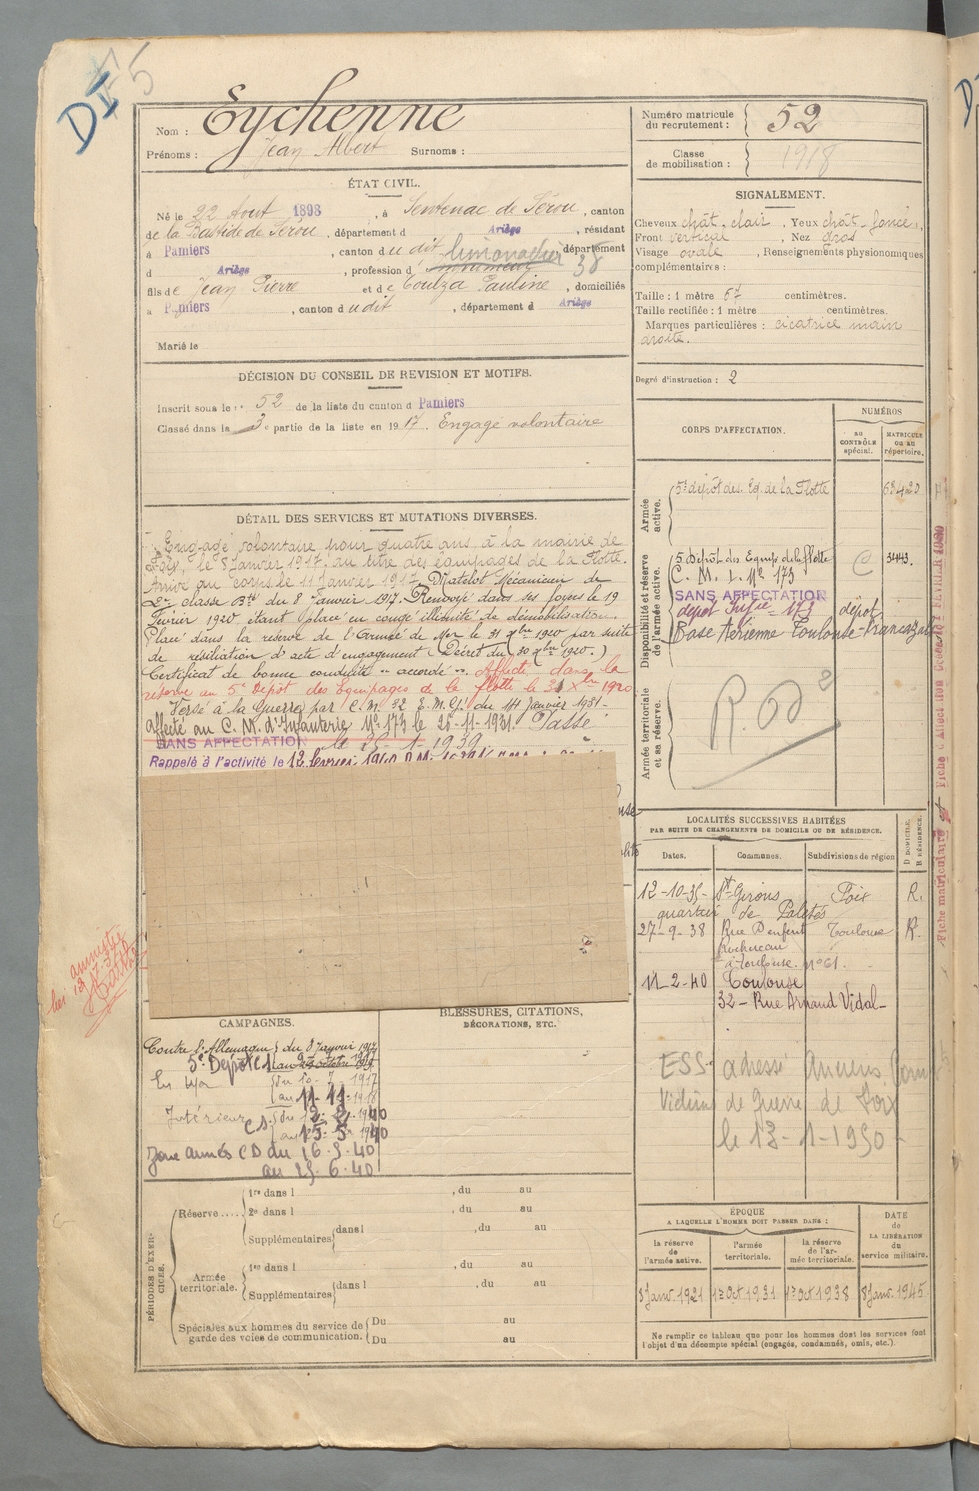 DI 5
Nom : Eychenne
Prénoms : Jean Albert Surnoms :
Numéro matricule du recrutement : 52
Classe de mobilisation : 1918
ÉTAT CIVIL.
Né le 22 Aout 1898, à Sentenac de Sérou, canton
de la Bastide de Sérou, département d Ariège, résidant
à Pamiers, canton d u dit, département
d Ariège, profession d limonadier 38
fils de Jean Pierre et de Coulza Pauline, domiciliés
à Pamiers, canton d udit, département d Ariège
Marié le
SIGNALEMENT.
Cheveux chât. clair, Yeux chât. foncé,
Front vertical, Nez gros
Visage ovale, Renseignements physionomiques
complémentaires :
Taille : 1 mètre 67 centimètres.
Taille rectifiée : 1 mètre centimètres.
Marques particulières : cicatrice main
droite.
Degré d'instruction : 2
DÉCISION DU CONSEIL DE REVISION ET MOTIFS.
Inscrit sous le n° 52 de la liste du canton d Pamiers
Classé dans la 3e partie de la liste en 1917. Engagé volontaire
DÉTAIL DES SERVICES ET MUTATIONS DIVERSES.
Engagé volontaire pour quatre ans à la mairie de
le 8 Janvier 1917. au titre des équipages de la Flotte.
Arrivé au corps le 11 Janvier 1917. Matelot Mécanicien de
2e classe Bté du 8 Janvier 1917. Renvoyé dans ses foyers le 19
Février 1920 étant placé en congé illimité de démobilisation.
Placé dans la réserve de l'Armée de Mer le 31 Xbre 1920 par suite
de résiliation d'acte d'engagement (Décret du 30 Xbre 1920.)
Certificat de bonne conduite "accordé". Affecté dans la
réserve au 5e Dépôt des Equipages de la flotte le 31 Xbre 1920
Versé à la Guerre par C. M. 32 E. M. G. du 14 Janvier 1931-
Affecté au C. M. d'Infanterie N° 173 le 25-11-1931. Passé
SANS AFFECTATION le 25-1-1939
Rappelé à l'activité le 12 février 1940
CORPS D'AFFECTATION.
NUMÉROS
au CONTRÔLE spécial.
MATRICULE ou au répertoire.
Armée active.
5e dépôt des Eq. de la Flotte 63420
Disponibilité et réserve de l'armée active.
5 Dépôt des Equip de la flotte C 3443.
C. M. I. N° 173
SANS AFFECTATION
dépôt Infie 173 dépôt
Base Aérienne Toulouse-Francazal
Armée territoriale et sa réserve.
LOCALITÉS SUCCESSIVES HABITÉES
PAR SUITE DE CHANGEMENTS DE DOMICILE OU DE RÉSIDENCE.
Dates. Communes. Subdivisions de région
D DOMICILE. R RÉSIDENCE.
12-10-35- St Girons Foix R.
quartier de Paletès
27-9-38 Rue Denfert Toulouse R.
Rochereau
à Toulouse. n° 61.
11-2-40 Toulouse
32 - Rue Arnaud Vidal-
adresse Anciens
de Guerre de Foix
le 13-1-1950
Fiche matriculaire et Fiche d'Affection
amnistie
CAMPAGNES.
Contre l'Allemagne du 8 Janvier 1917
5e Dépôt
au 11-11-1918
Intérieur CS. du 12-2-1940
au 15-5-1940
Zone armés CD du 16.5.40
au 25.6.40
BLESSURES, CITATIONS,
DÉCORATIONS, ETC.
PÉRIODES D'EXERCICES.
Réserve
1re dans l , du au
2e dans l , du au
Supplémentaires dans l , du au
Armée territoriale.
1re dans l , du au
Supplémentaires dans l , du au
Spéciales aux hommes du service de garde des voies de communication.
Du au
Du au
ÉPOQUE
A LAQUELLE L'HOMME DOIT PASSER DANS :
la réserve de l'armée active.
l'armée territoriale.
la réserve de l'armée territoriale.
DATE de LA LIBÉRATION du service militaire.
8 Janv. 1921 1er Oct 1931 1er Oct 1938 8 Janv. 1945
Ne remplir ce tableau que pour les hommes dont les services font
l'objet d'un décompte spécial (engagés, condamnés, omis, etc.).